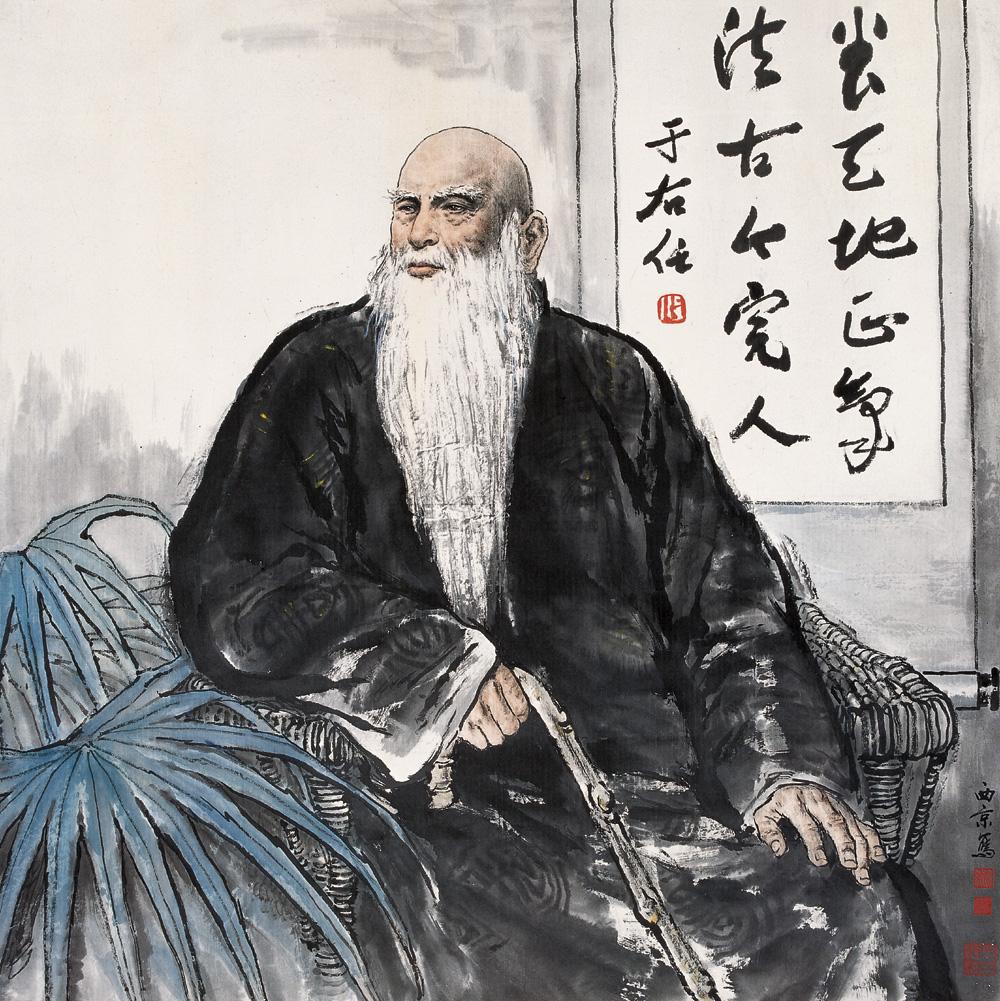 養天地正氣
法古今完人
于右任
西京篤